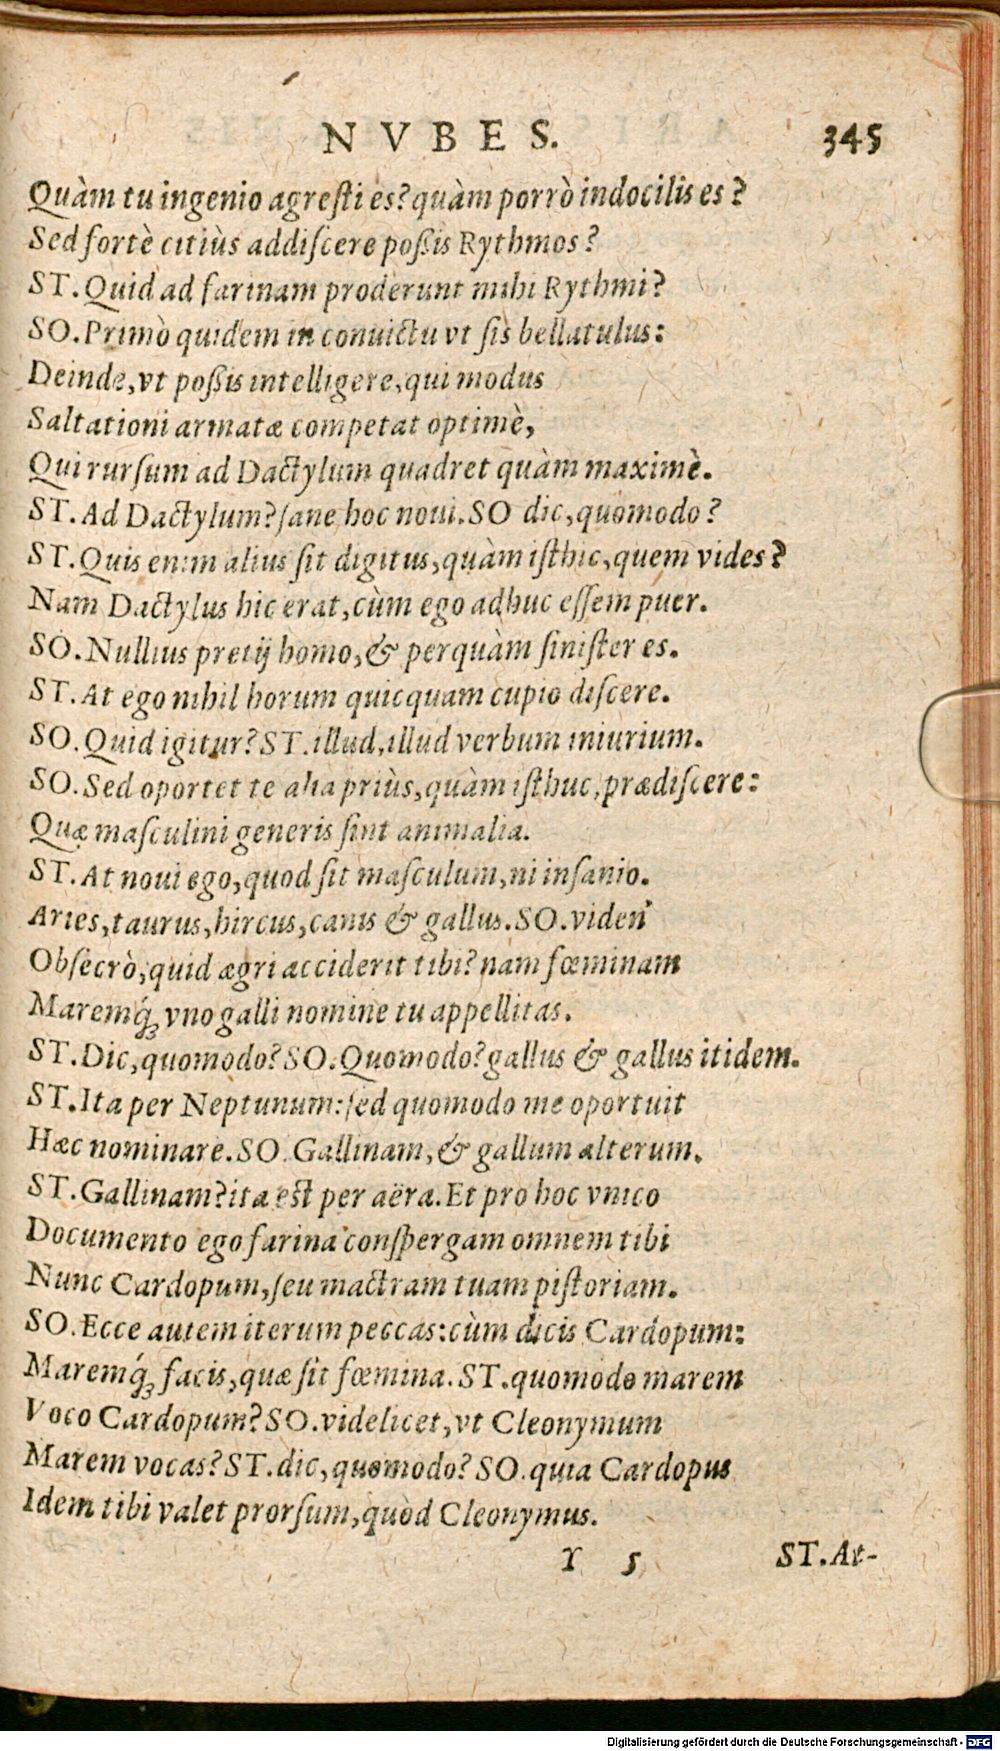 NVBES. 345
Quàm tu ingenio agresti es? quàm porrò indocilis es?
Sed fortè citiùs addiscere poßis Rythmos?
ST. Quid ad farinam proderunt mihi Rythmi?
SO. Primò quidem in conuictu vt sis bellatulus:
Deinde, vt poßis intelligere, qui modus
Saltationi armatæ competat optimè,
Qui rursum ad Dactylum quadret quàm maximè.
ST. Ad Dactylum? sane hoc noui. SO dic, quomodo?
ST. Quis enim alius sit digitus, quàm isthic, quem vides?
Nam Dactylus hic erat, cùm ego adhuc essem puer.
SO. Nullius pretij homo, & perquàm sinister es.
ST. At ego nihil horum quicquam cupio discere.
SO. Quid igitur? ST. illud, illud verbum iniurium.
SO. Sed oportet te alia priùs, quàm isthuc, prædiscere:
Quæ masculini generis sint animalia.
ST. At noui ego, quod sit masculum, ni insanio.
Aries, taurus, hircus, canis & gallus. SO. viden'
Obsecrò, quid ægri acciderit tibi? nam fœminam
Maremq́; vno galli nomine tu appellitas.
ST. Dic, quomodo? SO. Quomodo? gallus & gallus itidem.
ST. Ita per Neptunum: sed quomodo me oportuit
Hæc nominare. SO. Gallinam, & gallum alterum.
ST. Gallinam? ita est per aëra. Et pro hoc vnico
Documento ego farina conspergam omnem tibi
Nunc Cardopum, seu mactram tuam pistoriam.
SO. Ecce autem iterum peccas: cùm dicis Cardopum:
Maremq́; facis, quæ sit fœmina. ST. quomodo marem
Voco Cardopum? SO. videlicet, vt Cleonymum
Marem vocas? ST. dic, quomodo? SO. quia Cardopus
Idem tibi valet prorsum, quòd Cleonymus.
Y 5 ST. At-
Digitalisierung gefördert durch die Deutsche Forschungsgemeinschaft - DFG